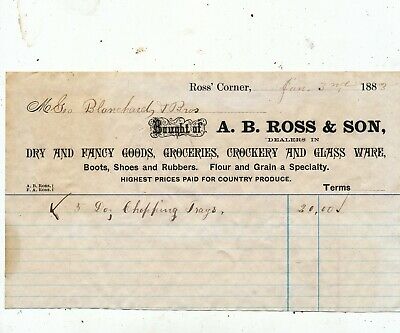 Ross' Corner, Jan. 3rd 1883
M Geo Blanchard & Bros
Bought of A. B. ROSS & SON,
DEALERS IN
DRY AND FANCY GOODS, GROCERIES, CROCKERY AND GLASS WARE,
Boots, Shoes and Rubbers. Flour and Grain a Specialty.
HIGHEST PRICES PAID FOR COUNTRY PRODUCE.
A. B. Ross,
F. A. Ross.
Terms
✓ 5 Doz Chopping Trays, 20,00